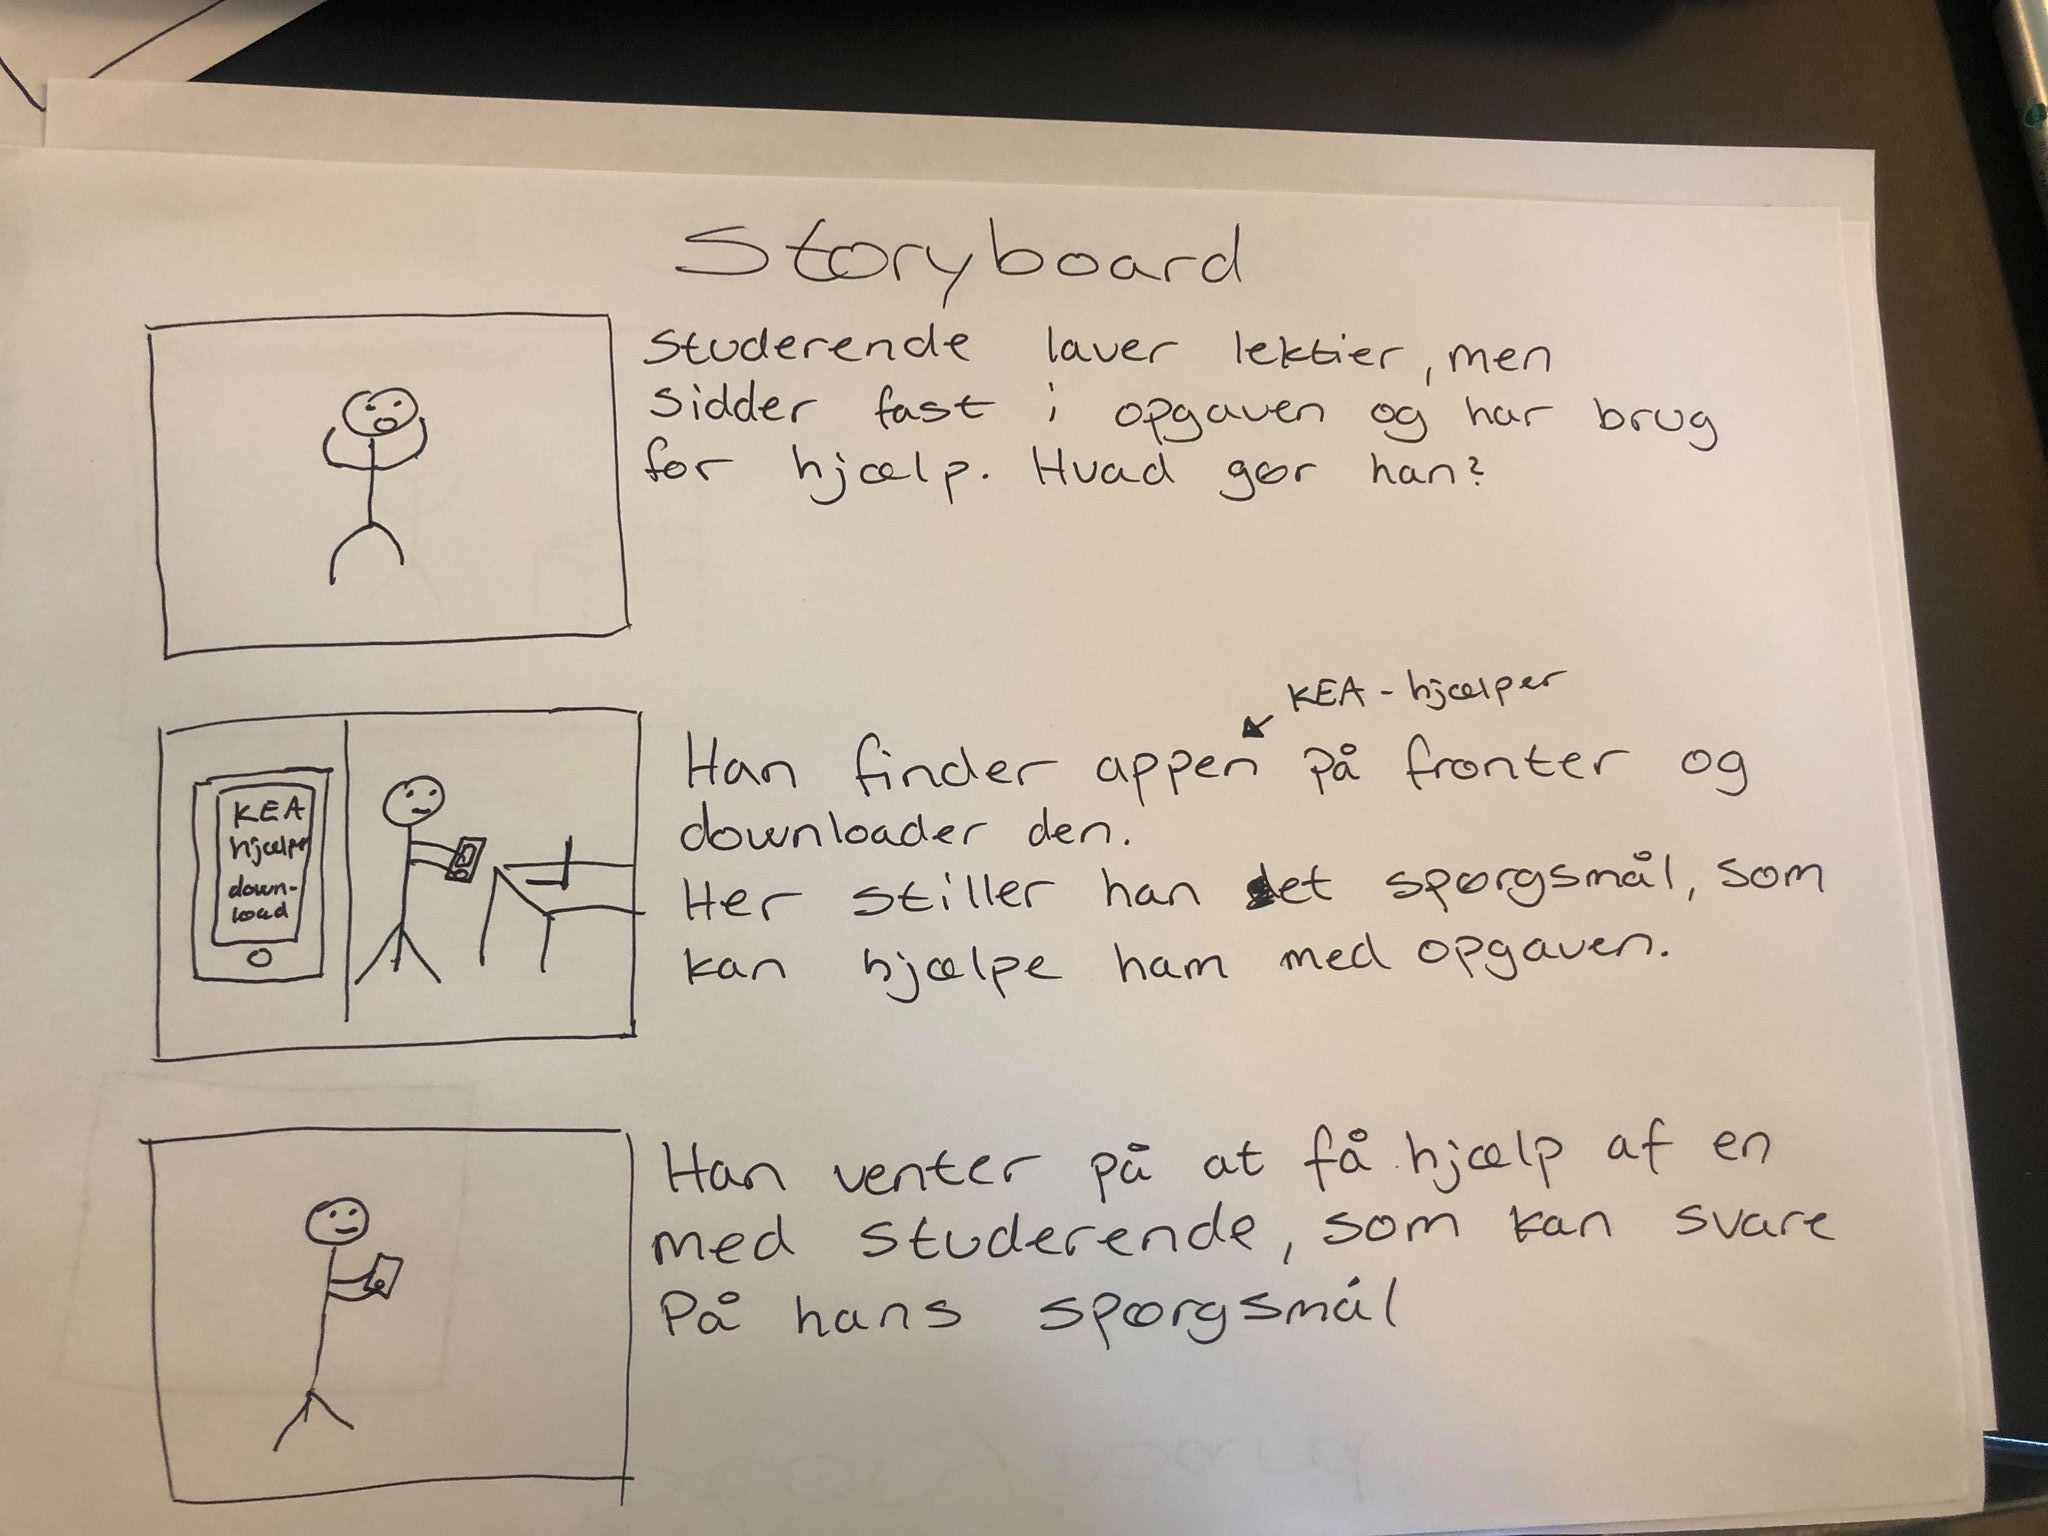 Storyboard
Studerende laver lektier, men
sidder fast i opgaven og har brug
for hjælp. Hvad gør han?
KEA - hjælper
Han finder appen på fronter og
downloader den.
Her stiller han det spørgsmål, som
kan hjælpe ham med opgaven.
KEA
hjælper
down-
load
Han venter på at få hjælp af en
med studerende, som kan svare
På hans spørgsmål